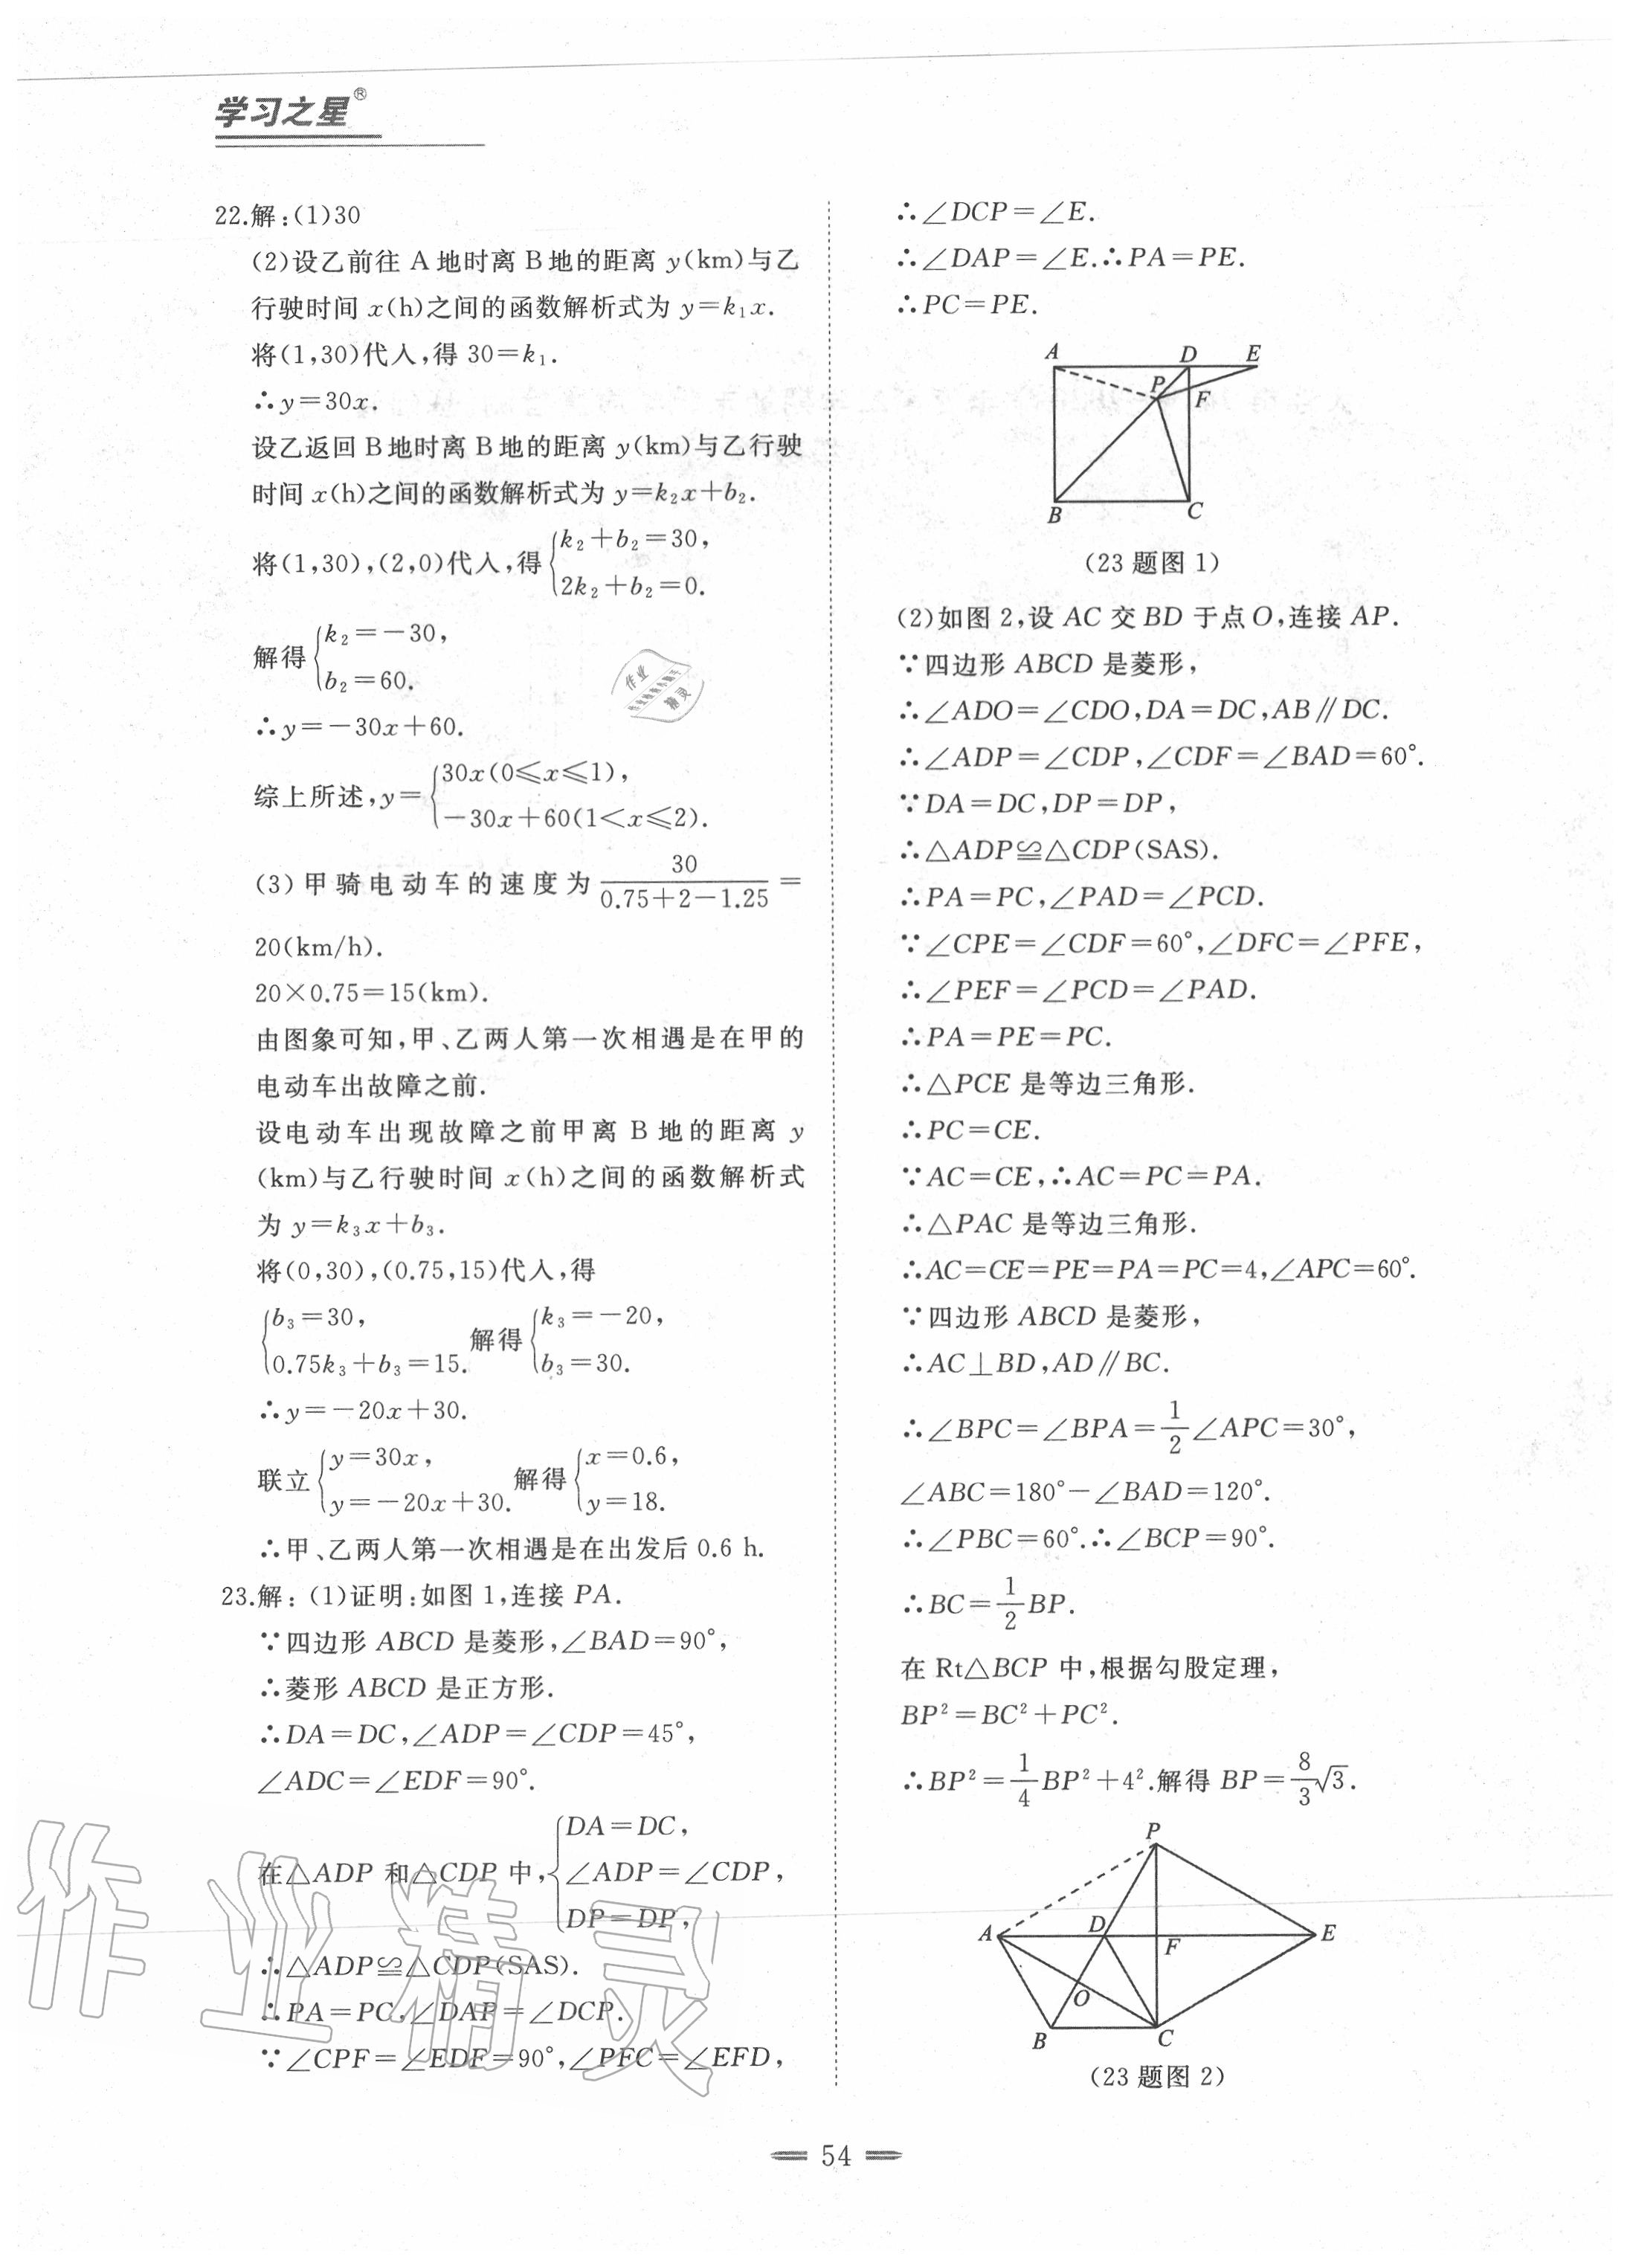 学习之星®
22.解:(1)30
(2)设乙前往 A 地时离 B 地的距离 y(km)与乙
行驶时间 x(h)之间的函数解析式为 y=k₁x.
将(1,30)代入,得 30=k₁.
∴y=30x.
设乙返回 B 地时离 B 地的距离 y(km)与乙行驶
时间 x(h)之间的函数解析式为 y=k₂x+b₂.
将(1,30),(2,0)代入,得{k₂+b₂=30,
2k₂+b₂=0.
解得{k₂=-30,
b₂=60.
∴y=-30x+60.
综上所述,y={30x(0≤x≤1),
-30x+60(1<x≤2).
(3)甲骑电动车的速度为 30/(0.75+2-1.25) =
20(km/h).
20×0.75=15(km).
由图象可知,甲、乙两人第一次相遇是在甲的
电动车出故障之前.
设电动车出现故障之前甲离 B 地的距离 y
(km)与乙行驶时间 x(h)之间的函数解析式
为 y=k₃x+b₃.
将(0,30),(0.75,15)代入,得
{b₃=30,
0.75k₃+b₃=15. 解得{k₃=-20,
b₃=30.
∴y=-20x+30.
联立{y=30x,
y=-20x+30. 解得{x=0.6,
y=18.
∴甲、乙两人第一次相遇是在出发后 0.6 h.
23.解:(1)证明:如图 1,连接 PA.
∵四边形 ABCD 是菱形,∠BAD=90°,
∴菱形 ABCD 是正方形.
∴DA=DC,∠ADP=∠CDP=45°,
∠ADC=∠EDF=90°.
在△ADP 和△CDP 中,{DA=DC,
∠ADP=∠CDP,
DP=DP,
∴△ADP≌△CDP(SAS).
∴PA=PC,∠DAP=∠DCP.
∵∠CPF=∠EDF=90°,∠PFC=∠EFD,
∴∠DCP=∠E.
∴∠DAP=∠E.∴PA=PE.
∴PC=PE.
A D E
P F
B C
(23 题图 1)
(2)如图 2,设 AC 交 BD 于点 O,连接 AP.
∵四边形 ABCD 是菱形,
∴∠ADO=∠CDO,DA=DC,AB∥DC.
∴∠ADP=∠CDP,∠CDF=∠BAD=60°.
∵DA=DC,DP=DP,
∴△ADP≌△CDP(SAS).
∴PA=PC,∠PAD=∠PCD.
∵∠CPE=∠CDF=60°,∠DFC=∠PFE,
∴∠PEF=∠PCD=∠PAD.
∴PA=PE=PC.
∴△PCE 是等边三角形.
∴PC=CE.
∵AC=CE,∴AC=PC=PA.
∴△PAC 是等边三角形.
∴AC=CE=PE=PA=PC=4,∠APC=60°.
∵四边形 ABCD 是菱形,
∴AC⊥BD,AD∥BC.
∴∠BPC=∠BPA=1/2∠APC=30°,
∠ABC=180°-∠BAD=120°.
∴∠PBC=60°.∴∠BCP=90°.
∴BC=1/2BP.
在 Rt△BCP 中,根据勾股定理,
BP²=BC²+PC².
∴BP²=1/4BP²+4².解得 BP=8/3√3.
P
A D F E
O
B C
(23 题图 2)
54
作业精灵
作业精灵